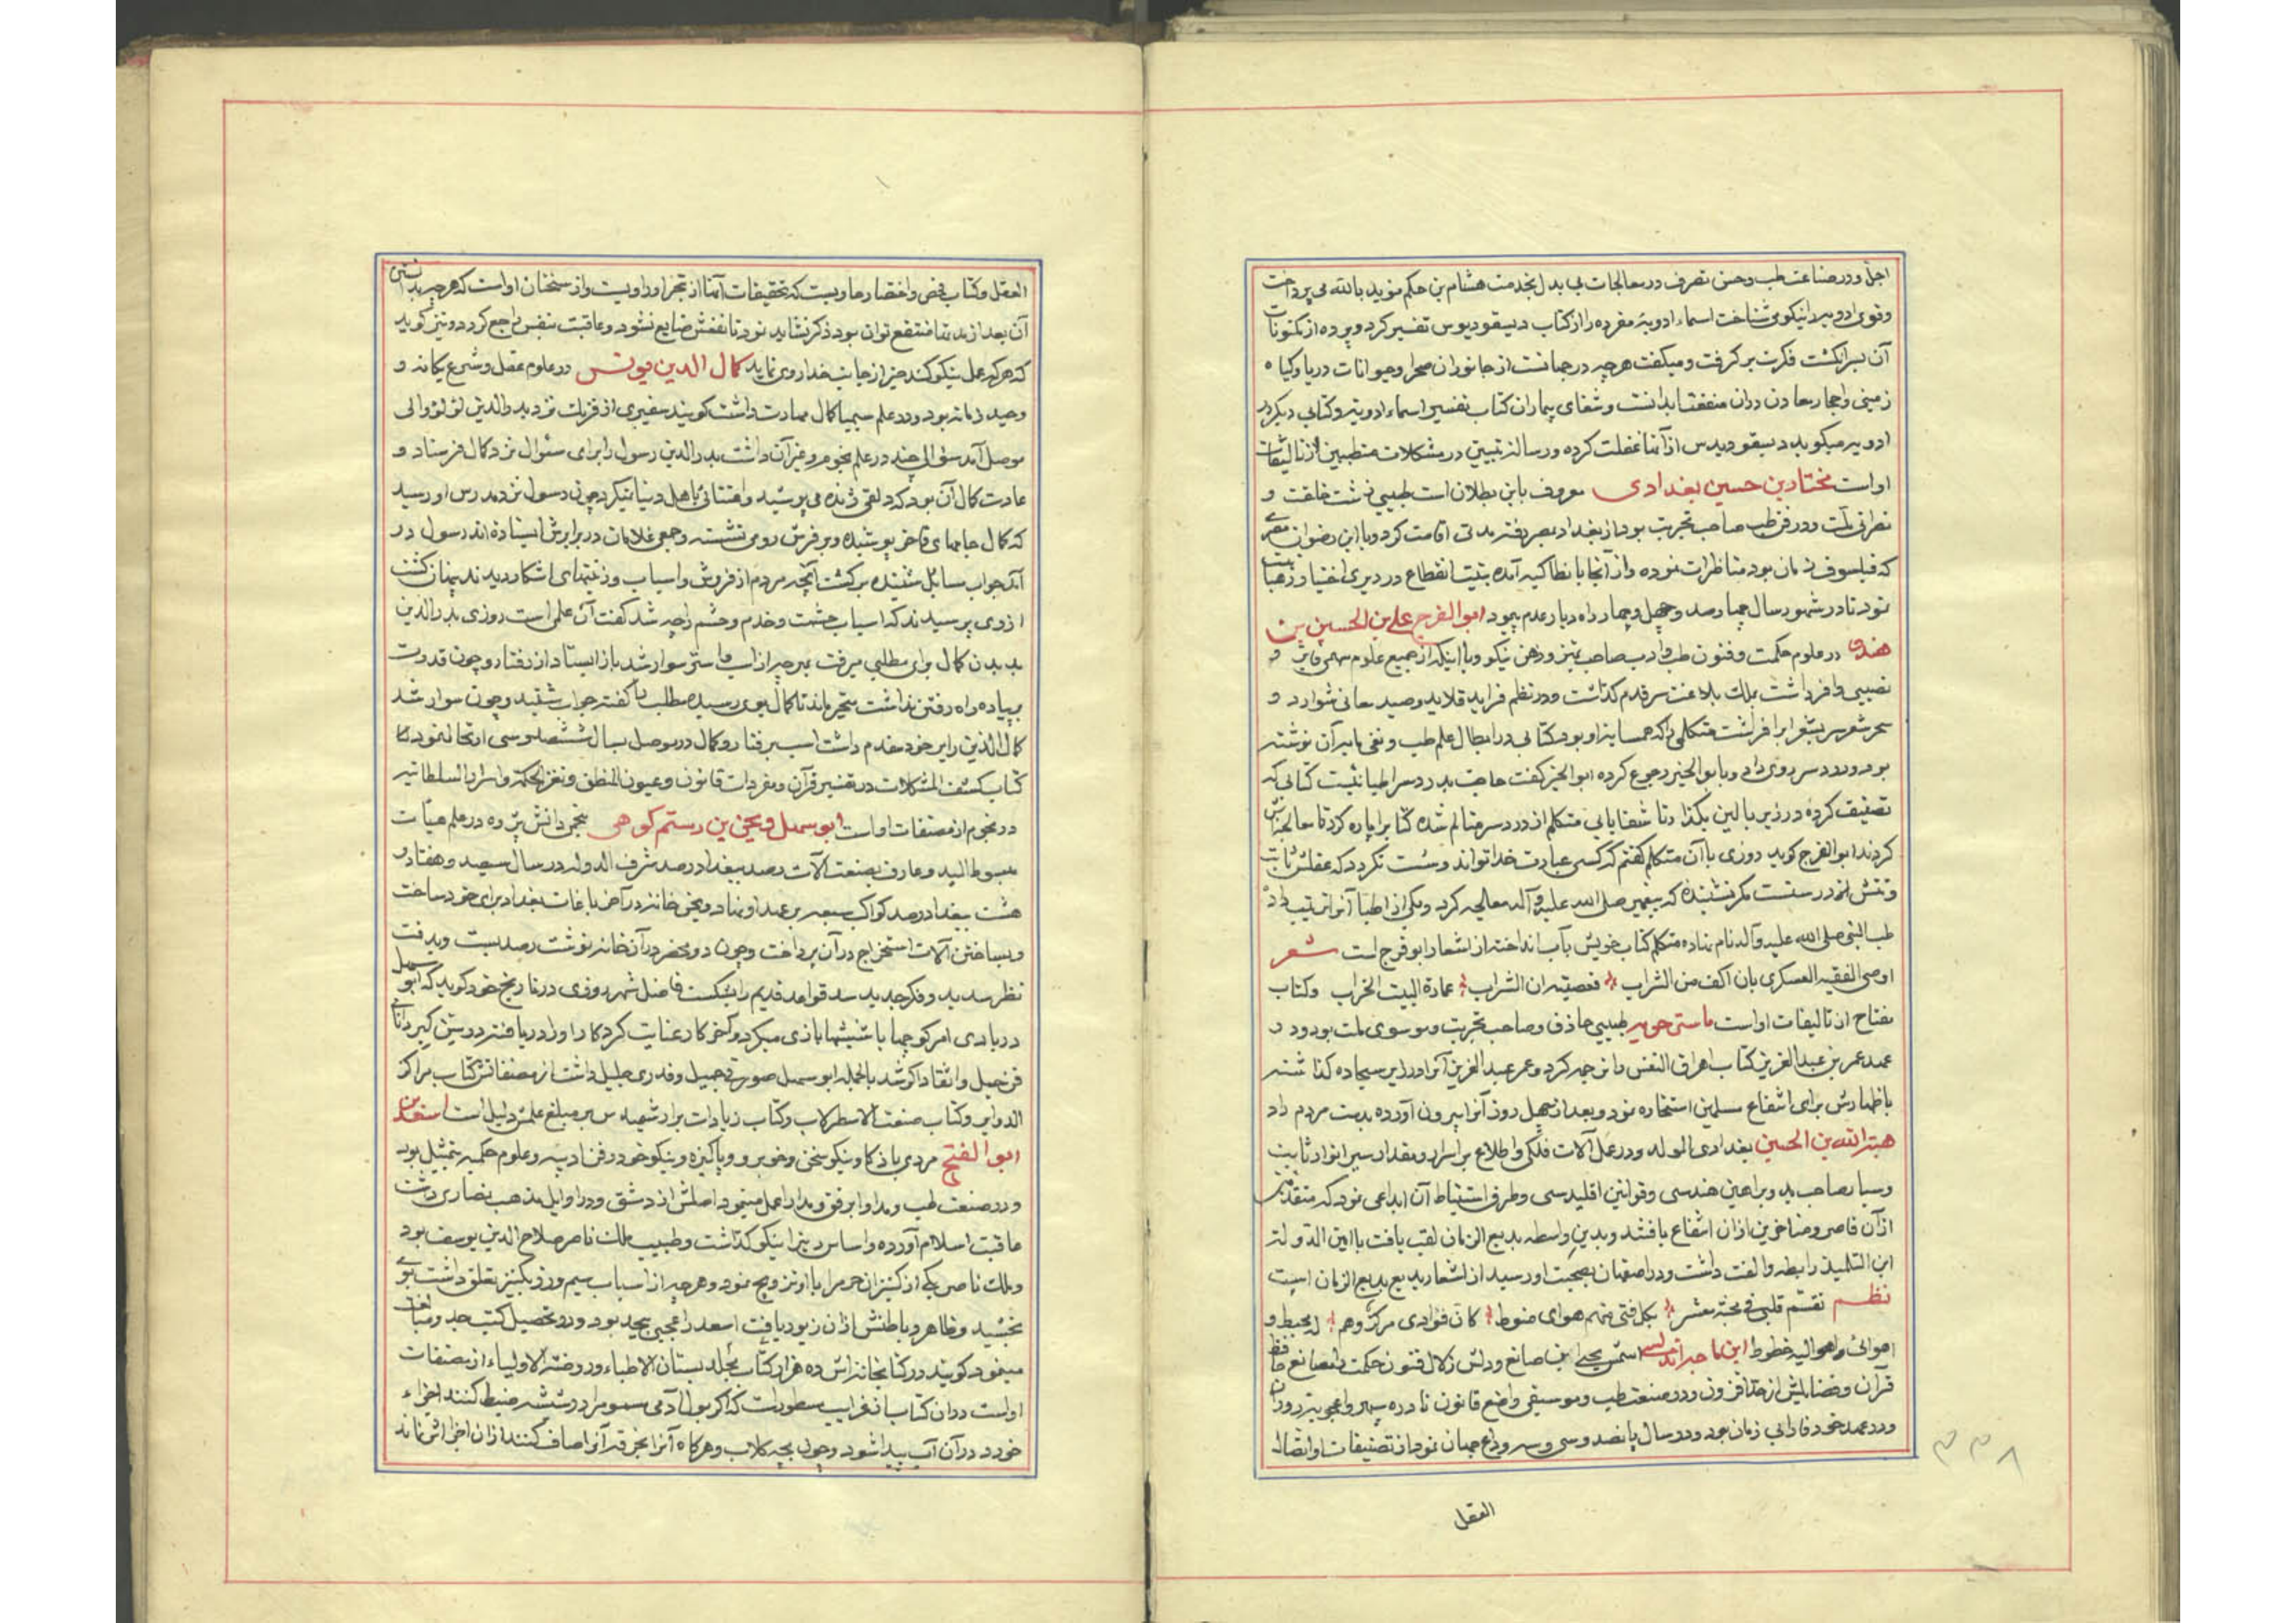 اجل و در صناعت طب و حسن تصرف در معالجات بی بدل بخدمت هشام بن حکم موید بالله می پرداخت
و قوی ادویه را نیکو می شناخت اسماء ادویه مفرده را از کتاب دیسقوریدوس تفسیر کرد و پرده از مکنونات
آن بسر انگشت فکرت بر گرفت و میگفت هر چه در جهانست از جانوران صحرا و حیوانات دریا و گیاه
زمینی و احجار معادن دران منفعتها بدانست و شفای بیماران کتاب تفسیر اسماء ادویه و کتابی دیگر در
ادویه میگوید دیسقوریدس از آنها غفلت کرده و رساله تبیین در مشکلات متطببین از تالیفات
اوست مختار بن حسین بغدادی معروف بابن بطلان است طبیبی زشت خلقت و
نصرانی ملت و در فن طب صاحب تجربت بود از بغداد بمصر رفته مدتی اقامت کرد و با ابن رضوان مصری
که فیلسوف زمان بود مناظرات نوده و از آنجا بانطاکیه آمده بنیت انقطاع در دیری اختیار رهبانیت
نمود تا در شهور سال چهارصد و چهل و چهار راه دیار عدم پیمود ابو الفرج علی بن الحسین بن
هندو در علوم حکمت و فنون طب و ادب صاحب تمیز و ذهن نیکو و با اینکه از جمیع علوم سهمی فایز و
نصیبی وافر داشت بملک بلاغت سر قدم گذاشت و در نظم فراید قلاید و صید معانی شوارد و
سحر شعر سر بشعرا برافراشت متکلمی را که همسایه او بود کتابی در ابطال علم طب و نفی تاثیر آن نوشته
بود و درد سر روی داد و بابو الخیر رجوع کرده ابو الخیر گفت حاجت بدردسر اطبا نیست کتابی که
تصنیف کرده در زیر بالین بگذار تا شفا یابی متکلم از درد سر متالم شده کتابرا پاره کرد تا معالجه اش
کردند ابو الفرج گوید روزی با آن متکلم گفتم که کسی عبادت خدا تواند و سست نگردد که عقلش ثابت
و تنش در سست مگر نشنیده که پیغمبر صلی الله علیه و آله معالجه کرد و یکی از اطبا آنرا ترتیب داد
طب النبی صلی الله علیه و آله نام نهاده متکلم کتاب خویش بآب انداخته از اشعار ابو فرج است شعر
اوصی الفقیه العسکری بان اکف من الشراب فعصیته ان الشراب عمارة البیت الخراب و کتاب
مفتاح از تالیفات اوست ماسرجویه طبیبی حاذق و صاحب تجربت و موسوی ملت بود و در
عهد عمر بن عبد العزیز کتاب اهرق القس را ترجمه کرد و عمر عبد العزیز آنرا در زیر سجاده گذاشته
باظهارش برای انتفاع مسلمین استخاره نمود و بعد از چهل روز آنرا بیرون آورده بدست مردم داد
هبة الله بن الحسین بغدادی المولد و در عمل آلات فلکی و اطلاع بر اسرار و مقدار سیر انوار ثابت
و سیار صاحب ید و براهین هندسی و قوانین اقلیدسی و طرق استنباط آن ابداعی نود که متقدمین
از آن قاصر و متاخرین از آن انتفاع یافتند و بدین واسطه بدیع الزمان لقب یافت با امین الدوله
ابن التلمیذ رابطه و الفت داشت و در اصفهان بصحبت او رسید از اشعار بدیع بدیع الزمان است
نظم تقسم قلبی فی محبة معشر بکل فتی منهم هوای منوط کان فؤادی مرکز و هم له محیط و
اهوائی و اهوالیه خطوط ابن ماجه اندلسی اسمش یحیی ابن صانع و دلش زلال فنون حکمت را صانع حافظ
قرآن و فضایلش از حد افزون و در صنعت طب و موسیقی واضع قانون نادره سپهر و اعجوبه دوران
و در عهد خود فارابی زمان بود و در سال پانصد و سی و سه وداع جهان نمود از تصنیفات او اتصال
۳۳۸
العقل
العقل و کتاب فحص و اختصار حاویست که تحقیقات آنها از تبحر او راویست و از سخنان اوست که هر چه بدانستن
آن بعد از مدتها منتفع توان بود ذکر نشاید نود تا نفعش ضایع نشود و عاقبت بنفس راجع گردد و نیز گوید
که هر که عمل نیکو کند خیر از جانب خدا روی نماید کمال الدین یونس در علوم عقل و شرع یگانه و
وحید زمانه بود و در علم سیمیا کمال مهارت داشت گویند سفیری از فرنک نزد بدر الدین لؤلؤ والی
موصل آمد سؤالی چند در علم نجوم و غیر آن داشت بدر الدین رسول را برای سئوال نزد کمال فرستاد و
عادت کمال آن بود که دلقی ژنده می پوشید و اعتنائی باهل دنیا نمیکرد چون رسول نزد مدرس او رسید
که کمال جامهای فاخر پوشیده و بر فرش رومی نشسته و جمعی غلامان در برابرش ایستاده اند رسول در
آمد جواب مسایل شنیده برگشت آنچه مردم از فروش و اسباب و زینتهای اشکار دیدند پنهان گشت
از وی پرسیدند که اسباب حشمت و خدم و حشم را چه شد گفت آن علمی است روزی بدر الدین
بدیدن کمال برای مطلبی میرفت بهر چه از اسب و استر سوار شد باز ایستاد از رفتار و چون قدرت
بپیاده راه رفتن نداشت متحیر ماند تا کمال بوی رسیده مطلب با گفته جواب شنید و چون سوار شد
کمال الدین را بر خود مقدم داشت اسب برفتار و کمال در موصل بسال ششصد و سی ارتحال نمود
کتاب کشف المشکلات در تفسیر قرآن و مفردات قانون و عیون المنطق و لغز الحکمة و اسرار السلطانیه
در نجوم از مصنفات اوست ابو سهل ویجن بن رستم کوهی سنجر دانش پژوه در علم هیأت
مبسوط الید و عارف بصنعت آلات رصد ببغداد رصد شرف الدوله در سال سیصد و هفتاد و
هشت ببغداد رصد کواکب سبعه بر عهد او نهاد ویجن خانه در آخر باغات بغداد برای خود ساخت
و بساختن آلات استخراج در آن پرداخت و چون دو محضر در آن خانه نوشت رصد ببست و بدقت
نظر سدید و فکر جدید سد قواعد قدیم را بشکست فاضل شهرزوری در تاریخ خود گوید که ابو سهل
در بادی امر کوچها با شیشها بازی میکرد و آخر کار عنایت کردگار او را دریافته در سن کبر دانای
فن حیل و اثقال و اکر شد بالجمله ابو سهل صورتی جمیل و قدری جلیل داشت از مصنفاتش کتاب مراکز
الدوایر و کتاب صنعت الاسطرلاب و کتاب زیادات بر ارشمیدس بر مبلغ علمش دلیل است اسعد بن
ابو الفتح مردی با ذکا و نیکو سخن و خوبرو و پاکیزه و نیکو خو در فن ادبیه و علوم حکمیه بتمثیل بود
و در صنعت طب و مداوا برفق و مدارا عمل مینمود اصلش از دمشق و در اوایل مذهب نصاری داشت
عاقبت اسلام آورده و اساس دین را نیکو گذاشت و طبیب ملک ناصر صلاح الدین یوسف بود
و ملک ناصر یکی از کنیزان حرم را با او تزویج نمود و هر چه از اسباب سیم و زر بکنیز تعلق داشت بوی
بخشید و ظاهر و باطنش از آن زیور یافت اسعد را عجبی بیحد بود و در تحصیل کتب جد و مبالغه
مینمود گویند در کتابخانه اش ده هزار کتاب بجلد بستان الاطباء و روضة الاولیاء از مصنفات
اوست دران کتاب از غرایب مسطور است که اگر بول آدمی مسموم را در شیشه ضبط کنند اجزاء
خورد در آن آب پیدا شود و چون بچه کلاب و هر گاه آنرا بخرقه آنرا صاف کنند از آن اجزا اثر نماند